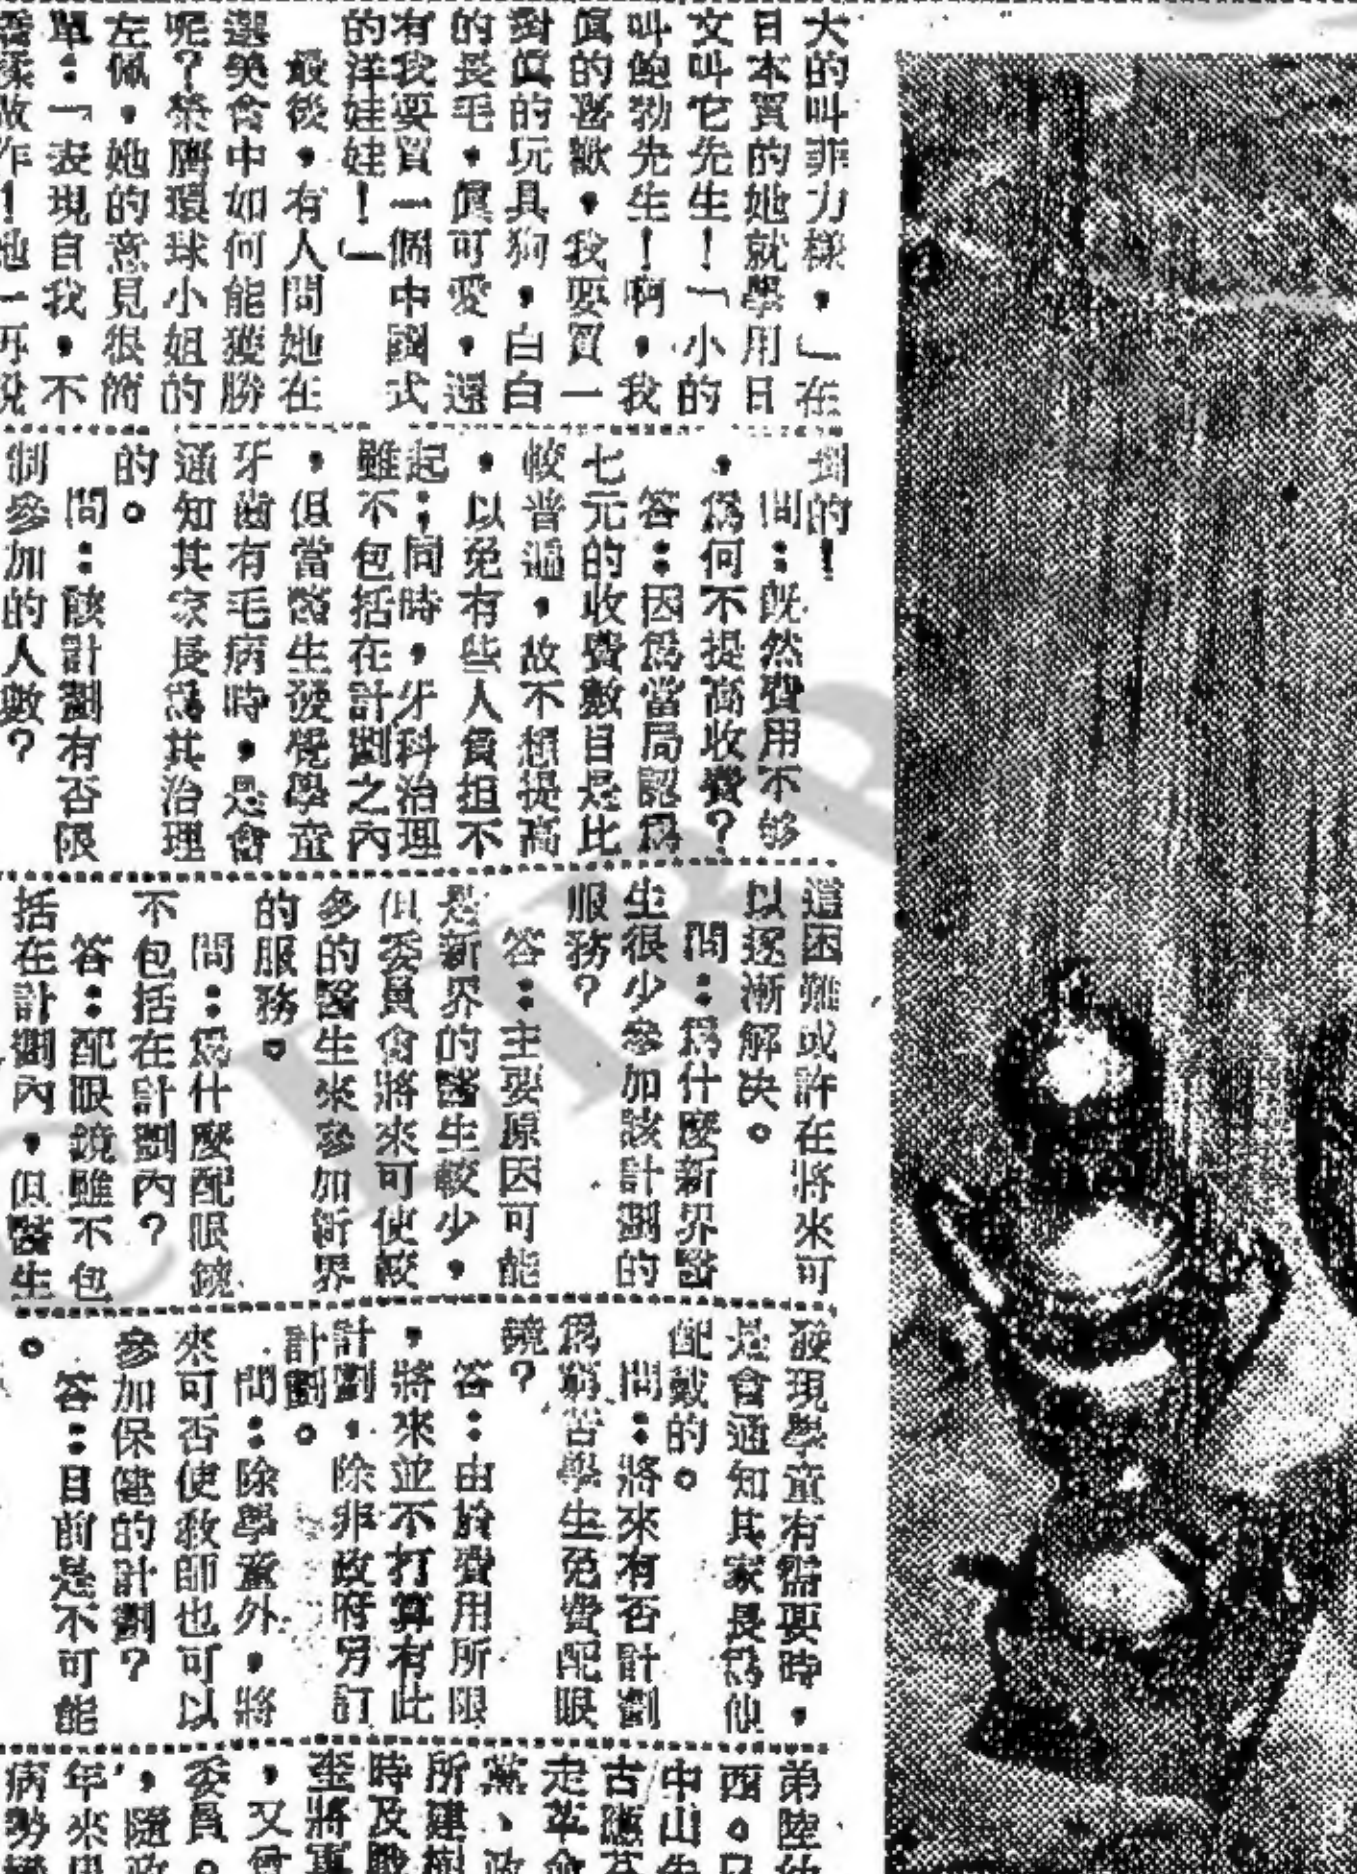 大的叫菲力樣，」在
日本買的她就學用日
文叫它先生！「小的
叫鮑勃先生！啊，我
真的喜歡，我要買一
對真的玩具狗，白白
的長毛，真可愛，還
有我要買一個中國式
的洋娃娃！」
最後，有人問她在
選美會中如何能獲勝
呢？榮膺環球小姐的
左佩，她的意見很簡
單：「表現自我，不
到的！
問：既然費用不够
，爲何不提高收費？
答：因爲當局認爲
七元的收費數目是比
較普遍，故不想提高
，以免有些人負担不
起；同時，牙科治理
雖不包括在計劃之內
，但當醫生發覺學童
牙齒有毛病時，是會
通知其家長爲其治理
的。
問：該計劃有否限
制參加的人數？
這困難或許在將來可
以逐漸解决。
問：爲什麽新界醫
生很少參加該計劃的
服務？
答：主要原因可能
是新界的醫生較少，
但委員會將來可使較
多的醫生來參加新界
的服務。
問：爲什麽配眼鏡
不包括在計劃內？
答：配眼鏡雖不包
括在計劃內，但醫生
發現學童有需要時，
是會通知其家長爲他
配戴的。
問：將來有否計劃
爲窮苦學生免費配眼
鏡？
答：由於費用所限
，將來並不打算有此
計劃，除非政府另訂
計劃。
問：除學童外，將
來可否使教師也可以
參加保健的計劃？
答：目前是不可能
。
弟陸
西。
中山先
古應芬
走革命
黨、政
所建樹
時及戰
至將軍
，又
委員。
，隨政
年來
病勢